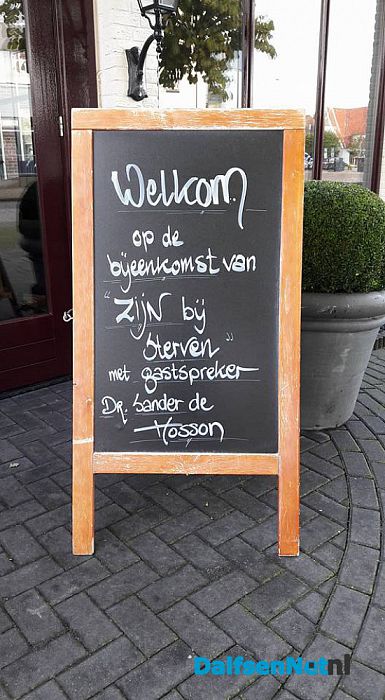 Welkom
op de
bijeenkomst van
"Zijn bij
Sterven"
met gastspreker
Dr. Sander de
Hosson
DalfsenNet.nl